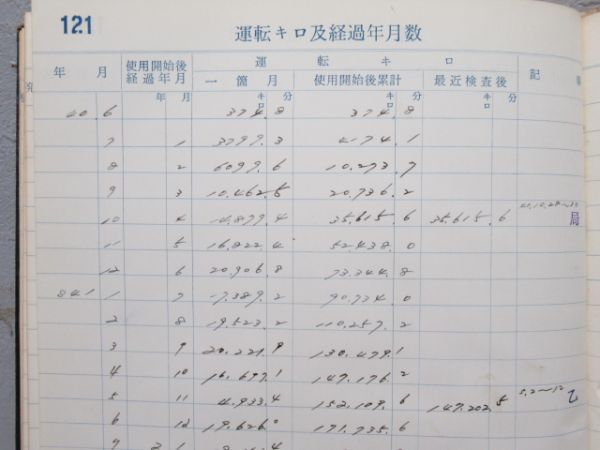 121
運転キロ及経過年月数
年 月 使用開始後経過年月 運 転 キ ロ 記
一箇月 使用開始後累計 最近検査後
年 月 キロ 分 キロ 分 キロ 分
40 . 6 374 . 8 374 . 8
7 1 3799 . 3 4174 . 1
8 2 6099 . 6 10.273 . 7
9 3 10.462 . 5 20.736 . 2
10 4 14.879 . 4 35.615 . 6 35.615 . 6 局
11 5 16.822 . 4 52.438 . 0
12 6 20.906 . 8 73.344 . 8
41 1 7 17.389 . 2 90.734 . 0
2 8 19.523 . 2 110.257 . 2
3 9 20.221 . 9 130.479 . 1
4 10 16.697 . 1 147.176 . 2
5 11 4.933 . 4 152.109 . 6 147.202 5 5.2〜12 乙
6 12 19.626 0 171.735 . 6